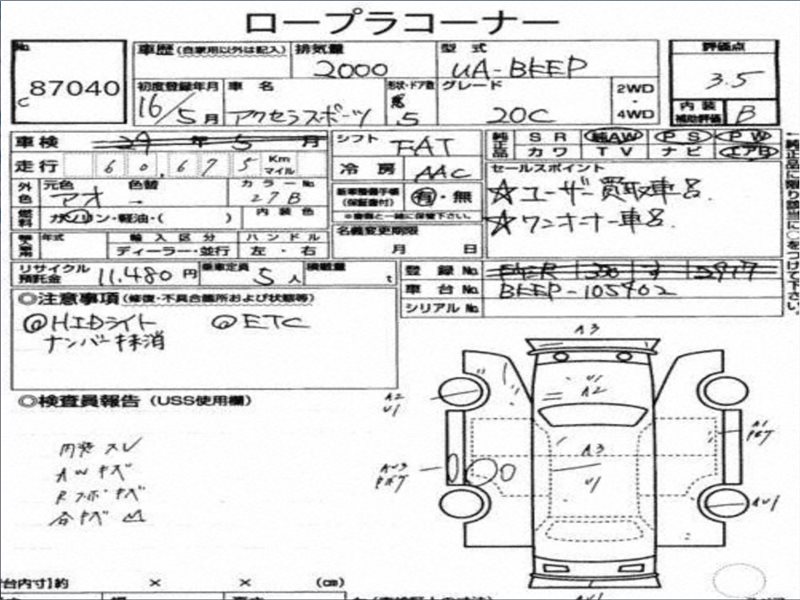 ロープラコーナー
No.
C 87040
車歴（自家用以外は記入） 排気量 2000 型式 UA-BKEP
初度登録年月 16/5月 車名 アクセラスポーツ 形状・ドア数 5 グレード 20C 2WD・4WD
評価点 3.5
内装補助評価 B
車検 29年5月
走行 60,675 Km マイル
シフト FAT
冷房 AAC
純正品 SR 純AW PS PW
カワ TV ナビ エアB
外色 元色 アオ 色替 カラーNo. 27B
燃料 ガソリン・軽油・( ) 内装色
有・無
※車輌と一緒に保管下さい。
名義変更期限 月 日
セールスポイント
☆ユーザー買取車
☆ワンオーナー車
年式 輸入区分 ハンドル
ディーラー・並行 左・右
リサイクル預託金 11,480円 乗車定員 5人 積載量 t
登録No.
車台No. BKEP-105402
シリアルNo.
◎注意事項（修復・不具合箇所および状態等）
@HIDライト @ETC
ナンバー抹消
◎検査員報告（USS使用欄）
内装スレ
AWキズ
Rスポキズ
各キズ凹
A3
U1
A2
A2
U1
A3
U1
AU3
A1
AU1
AU1
台内寸】約 × × (cm)